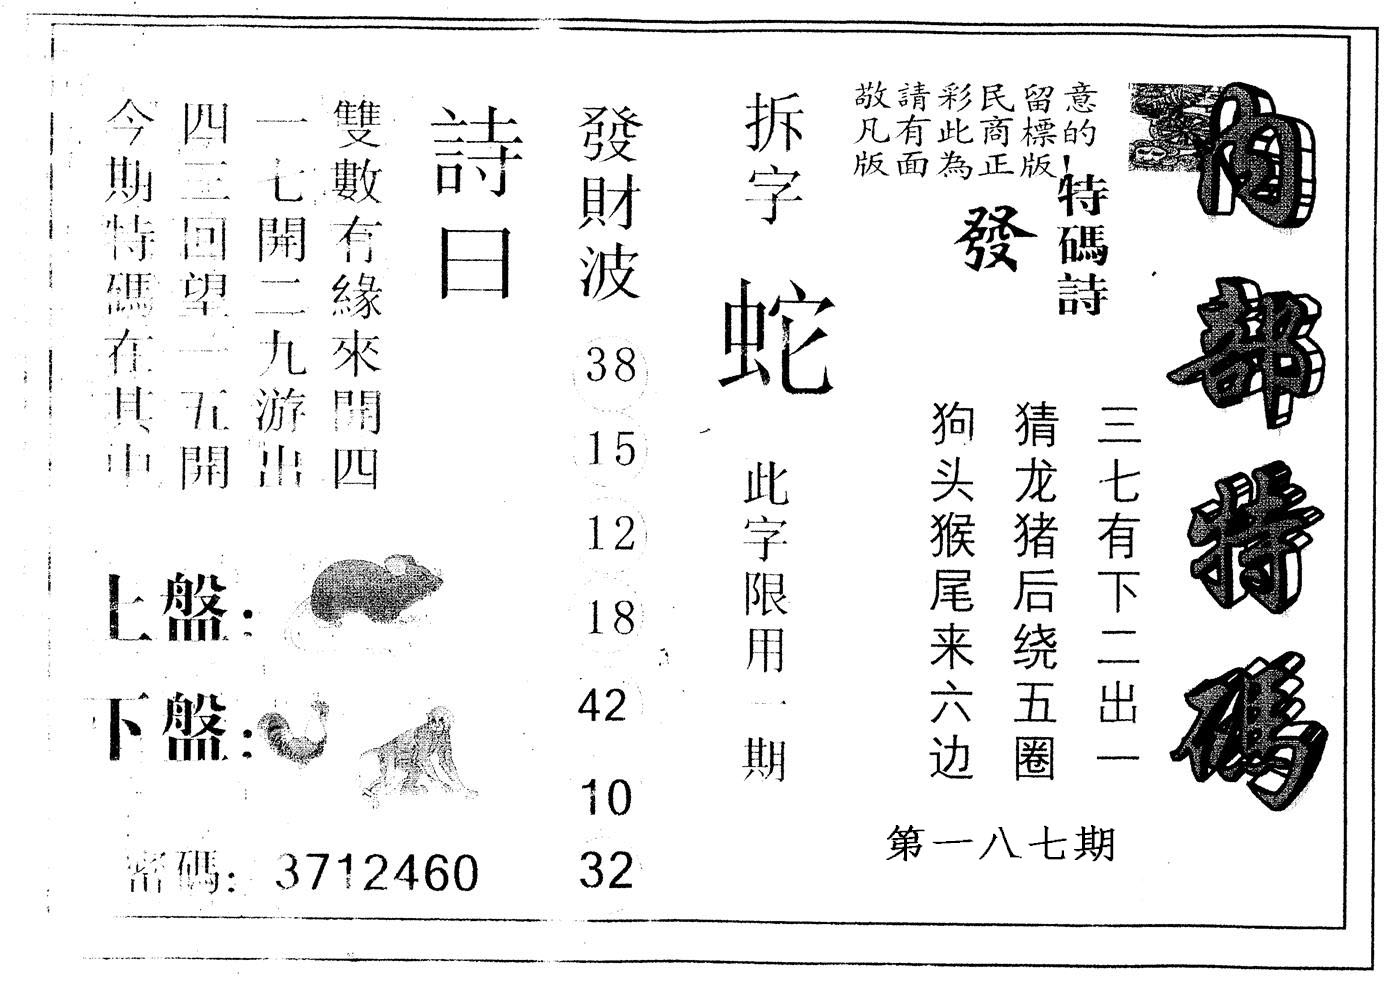 內部特碼
敬請彩民留意
凡有此商標的
版面為正版！
特碼詩
發
三七有下二出一
猜龙猪后绕五圈
狗头猴尾来六边
第一八七期
拆字
蛇
此字限用一期
發財波
38
15
12
18
42
10
32
詩曰
雙數有緣來開四
一七開二九游出
四三回望一五開
今期特碼在其中
上盤：
下盤：
密碼：3712460